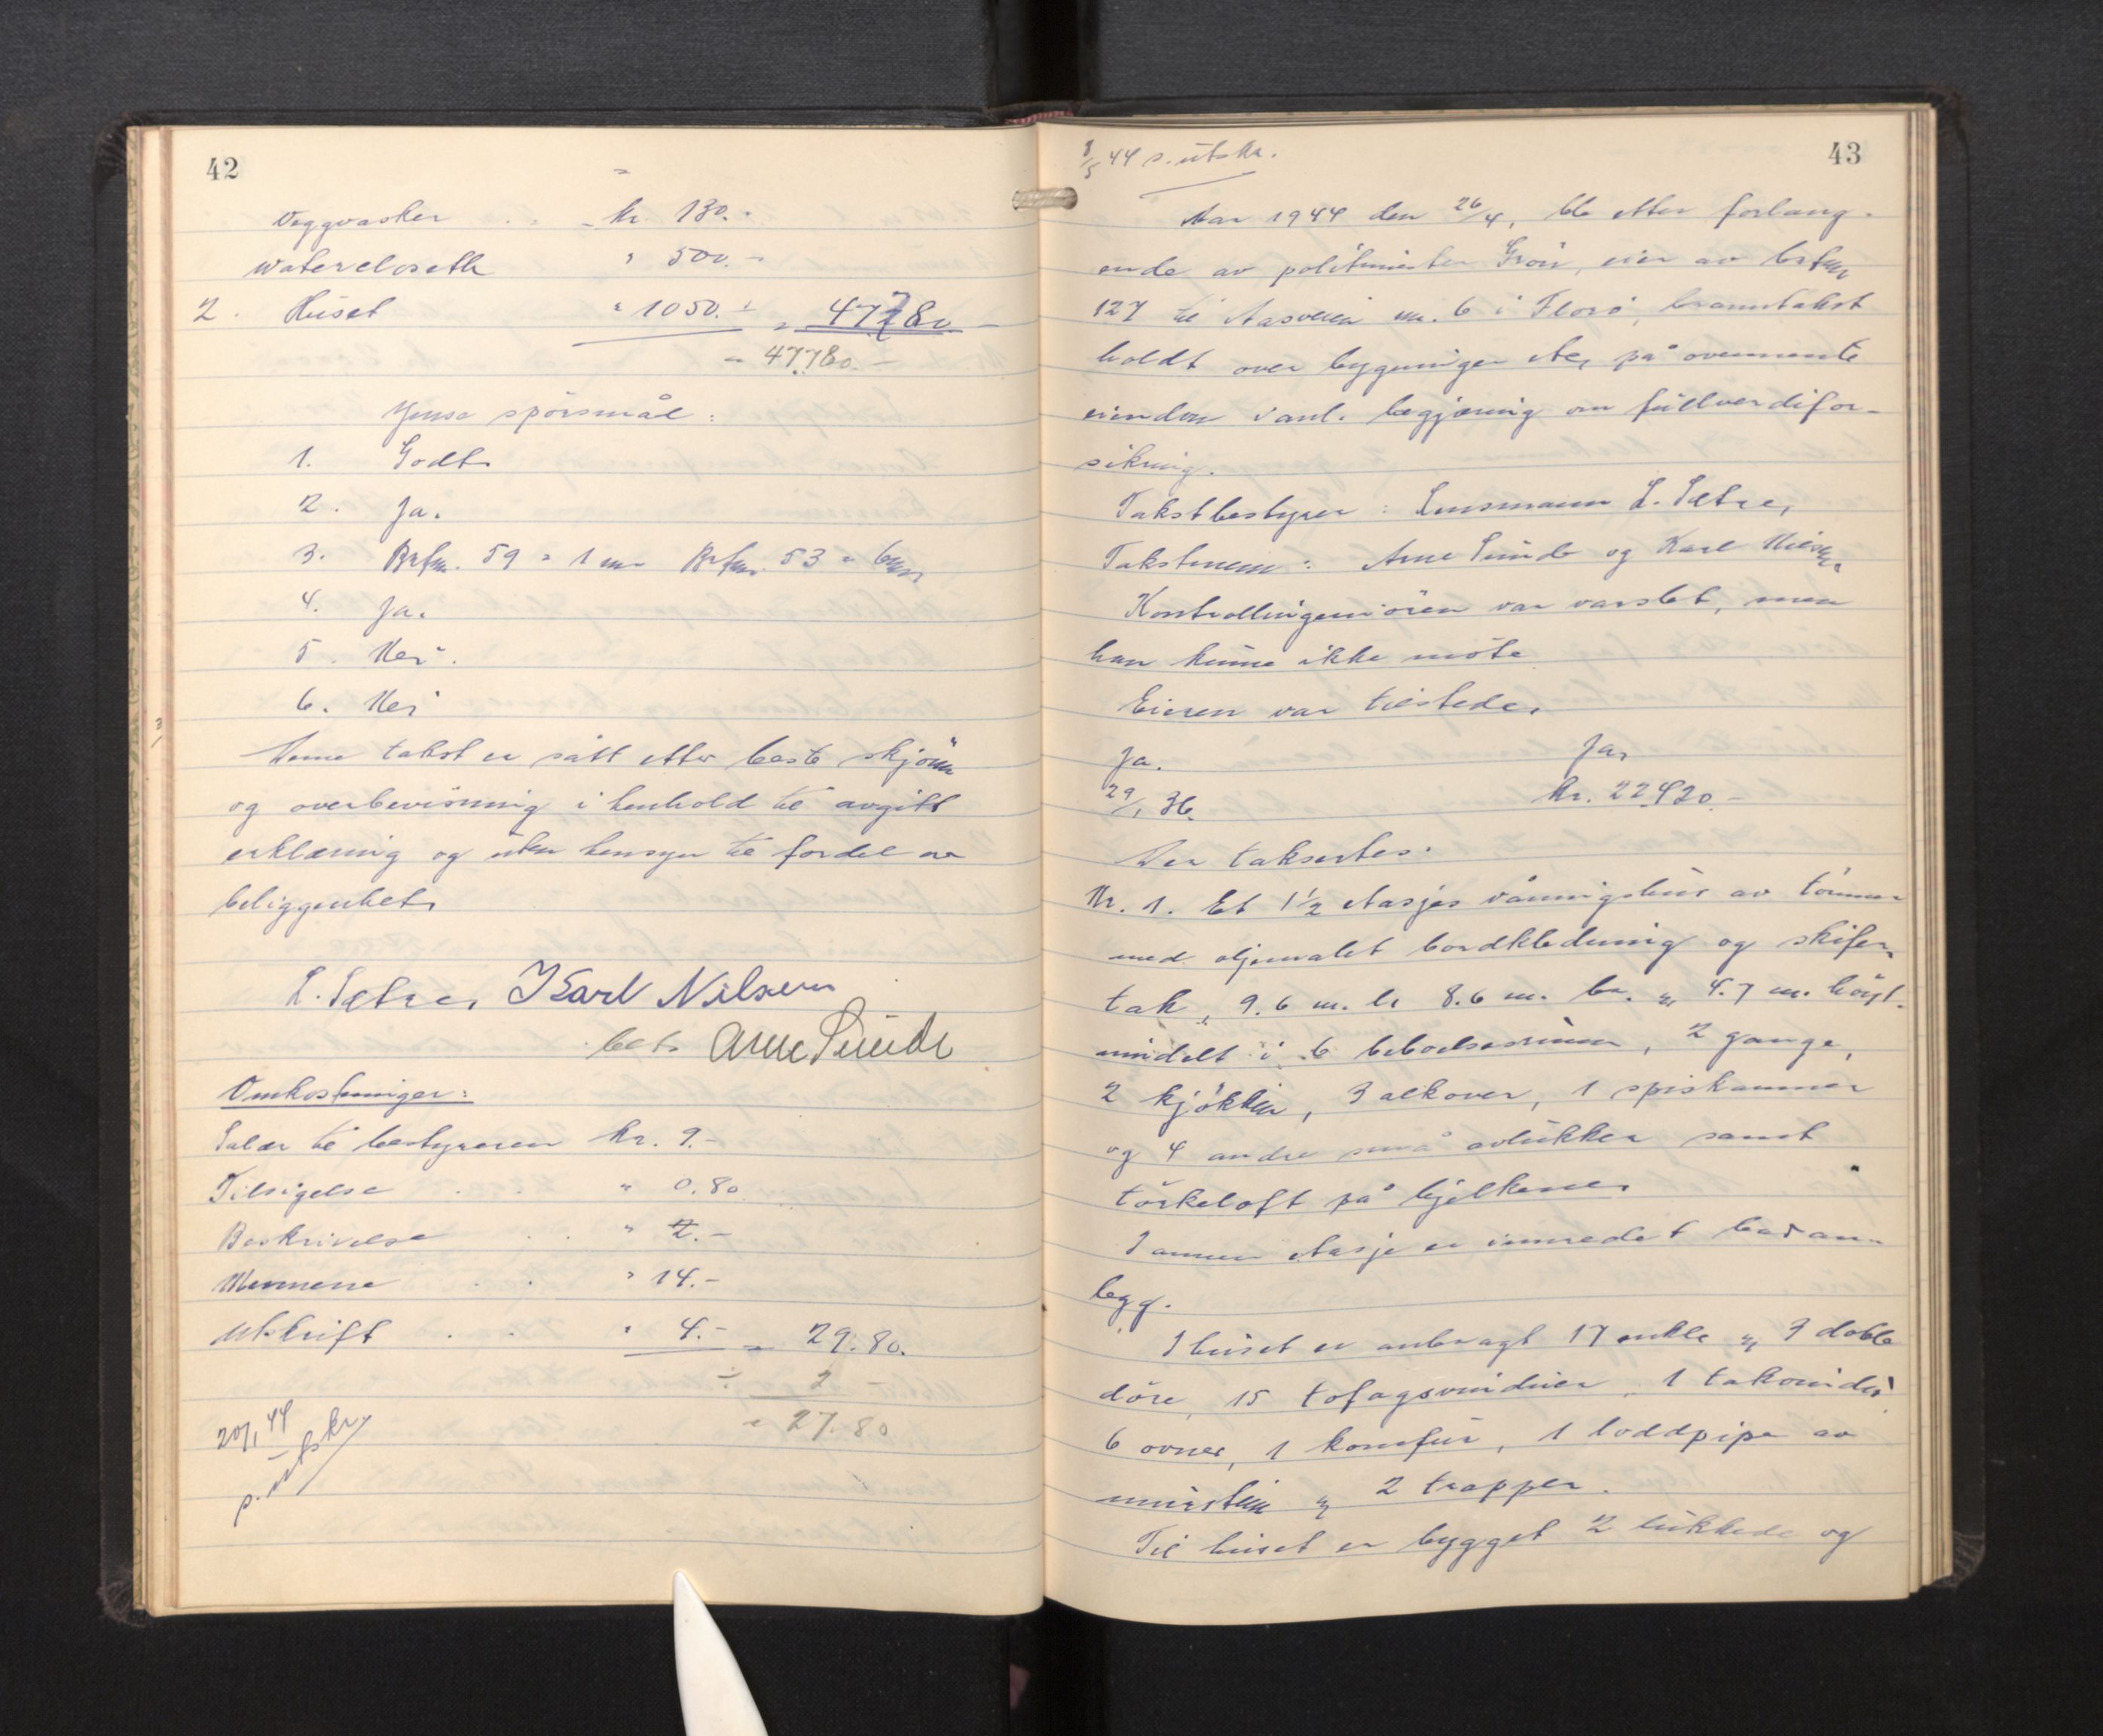 42
Veggvasker . . - kr. 130.-
Watercloseth " 500.-
2. Huset " 1050.- = 47780.-
= 47780.-
Ymse spörsmål:
1. Godt
2. Ja.
3. Brfnr. 59 = 1 m. Brfnr. 53 = 6 m.
4. Ja.
5. Nei.
6. Nei
Denne takst er satt etter beste skjönn
og overbevisning i henhold til avgitt
erklæring og uten hensyn til fordel av
beliggenhet.
L. Sætre, Karl Nilsen
Arne Sunde
Omkostninger:
Salær til bestyreren kr. 9.-
Tilsigelse . . " 0.80
Beskrivelse . . " 2.-
Mennene . . " 14.-
Utskrift . . " 4.- = 29.80.
÷ 2 -
= 27.80
20/1 44
p. utskr.
43
8/5 44 p. utskr.
Aar 1944 den 26/4, ble etter forlang-
ende av politimester Grön, eier av brfnr
127 til Aasveien nr. 6 i Florö, branntakst
holdt over bygninger etc, på ovennevnte
eiendom i anl. begjæring om fullverdifor-
sikring.
Takstbestyrer: Lensmann L. Sætre,
Takstmenn: Arne Sunde og Karl Nilsen.
Kontrollingeniören var varslet, men
han kunne ikke möte
Eieren var tilstede.
Ja. Ja,
29/1 36. kr. 22420.-
Der takseres:
Nr. 1. Et 1 1/2 etasjes våningshus av tömmer
med oljemalet bordkledning og skifer-
tak, 9.6 m. l. 8.6 m. br. og 4.7 m. höyt.
inndelt i 6 beboelsesrum, 2 gange,
2 kjökken, 3 alkover, 1 spiskammer
og 4 andre små avlukker samt
törkeloft på bjelkene.
I annen etasje er innredet badan-
legg.
I huset er anbragt 17 enkle og 3 doble
döre, 15 tofagsvinduer, 1 takvindu,
6 ovner, 1 komfur, 1 loddpipe av
murstein og 2 trapper.
Til huset er bygget 2 lukkede og